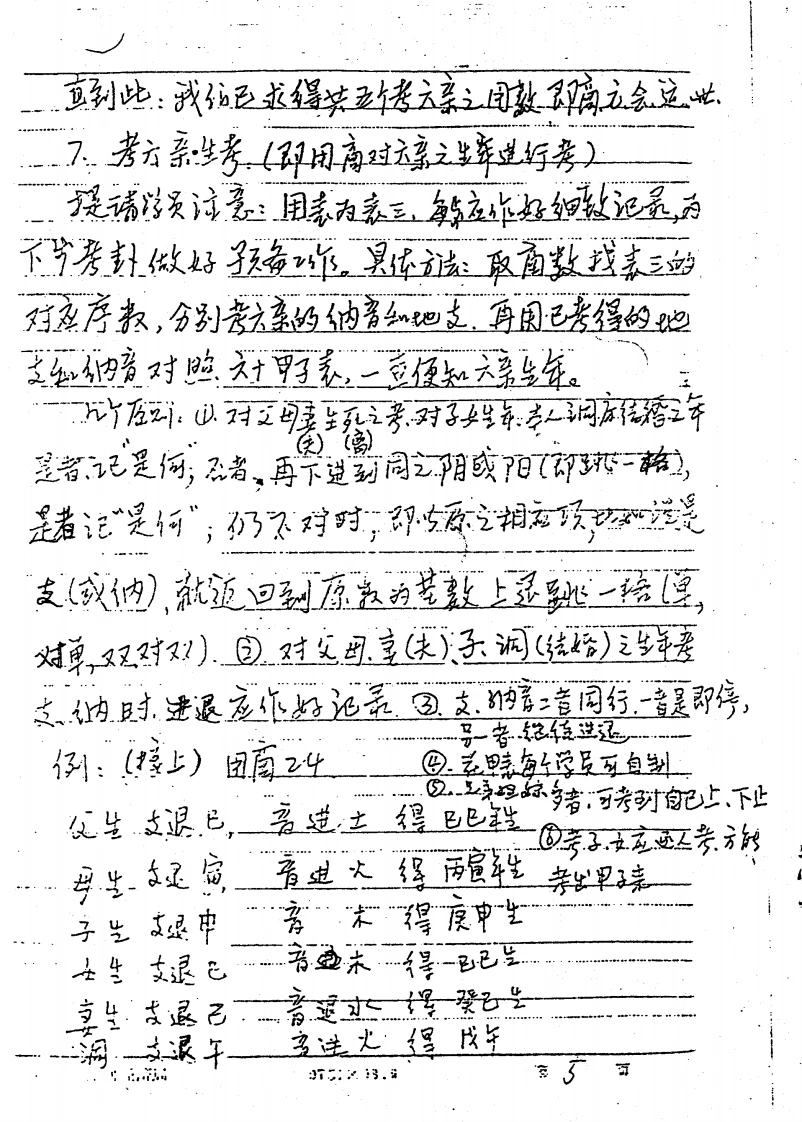 直到此：我们已求得共五个考六亲之因数 即商元会运世.
7. 考六亲生考.（即用商对六亲之生年进行考）
提请学员注意：用表为表三，每步应作好细数记录，为
下步考卦做好预备工作。具体方法：取商数找表三的
对应序数，分别考六亲的纳音和地支. 再用已考得的地
支和纳音对照六十甲子表，一查便知六亲生年。
几个原则：①.对父母妻生死之考.对子女生年.本人洞房结婚之年
（夫）（离）
是者.记"是何"；否者，再下进到同之阴或阳（即跳一格），
是者记"是何"；仍不对时，即与原之相应项，是
支（或纳），就返回到原数为基数上退跳一格（单，
对单，双对双）. ② 对父.母.妻（夫）.子.洞（结婚）之生年考
支、纳时.进退应作好记录 ③.支、纳音二者同行.一者是即停，
另一者继续进退
例：（接上）因商24
④.花甲表每个学员可自制
⑤.兄弟姐妹多者.可考到自己上、下止
父生 支退巳， 音进土 得 己巳年生
⑥考子.女应两人考.方能
考出甲子来
母生 支退寅， 音进火 得 丙寅年生
子生 支退申 音 木 得 庚申生
女生 支退巳 音进木 得 己巳生
妻生 支退巳 音退水 得 癸巳生
洞 支退午 音进火 得 戊午
第 5 页